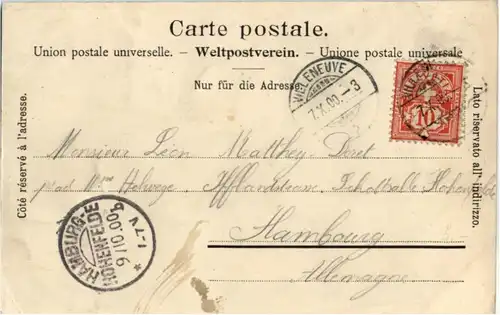 Carte postale.
Union postale universelle. – Weltpostverein. – Unione postale universale
Nur für die Adresse.
Côté réservé à l'adresse.
Lato riservato all'indirizzo.
VILLENEUVE
7.X.00. – 3
10
Monsieur Léon Matthey-Doret
Mme Helwege, Ifflandstrasse, Hohenfelde
Hambourg
Allemagne
HAMBURG-
HOHENFELDE
9/10.00.
1-7N